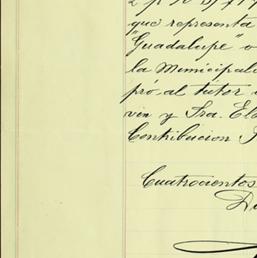 que representa
"Guadalupe" o
la Municipal
pró, al tutor
vin y Sra. El
Contribucion
Cuatrocientos